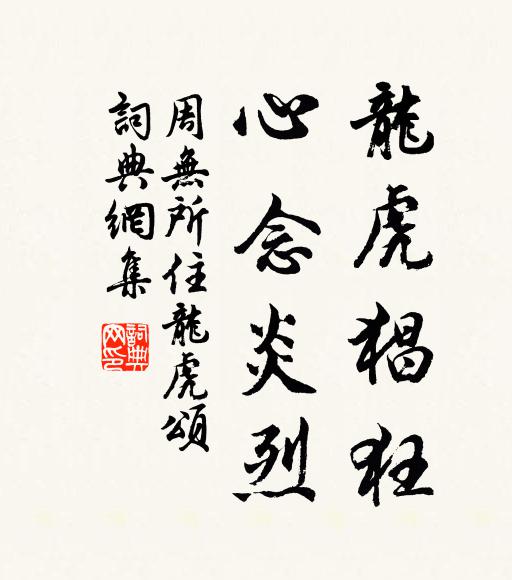 龍虎猖狂
心念炎烈
周無所住龍虎頌
詞典網集
詞典网印